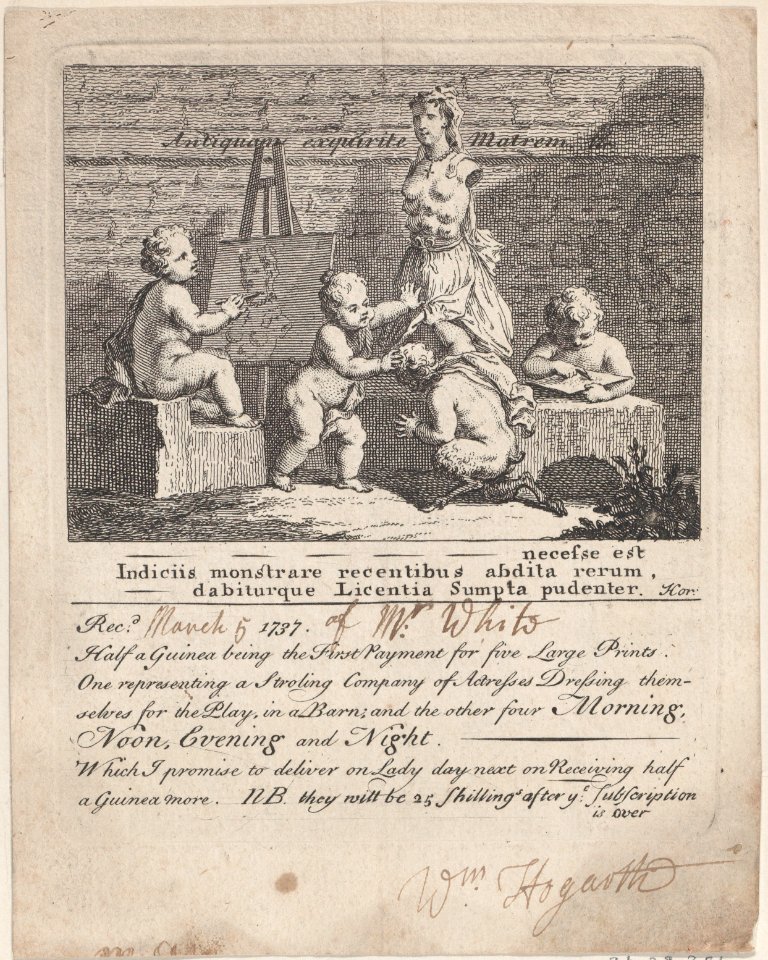 Antiquam exquirite Matrem,
neceſse est
Indiciis monstrare recentibus abdita rerum,
dabiturque Licentia Sumpta pudenter. Hor:
Rec.d March 5 1737. of Mr White
Half a Guinea being the First Payment for five Large Prints.
One representing a Stroling Company of Actreſses Dreſsing them-
selves for the Play, in a Barn; and the other four Morning,
Noon, Evening and Night.
Which I promise to deliver on Lady day next on Receiving half
a Guinea more. NB. they will be 25 Shillings after ye. Subſcription
is over
Wm Hogarth